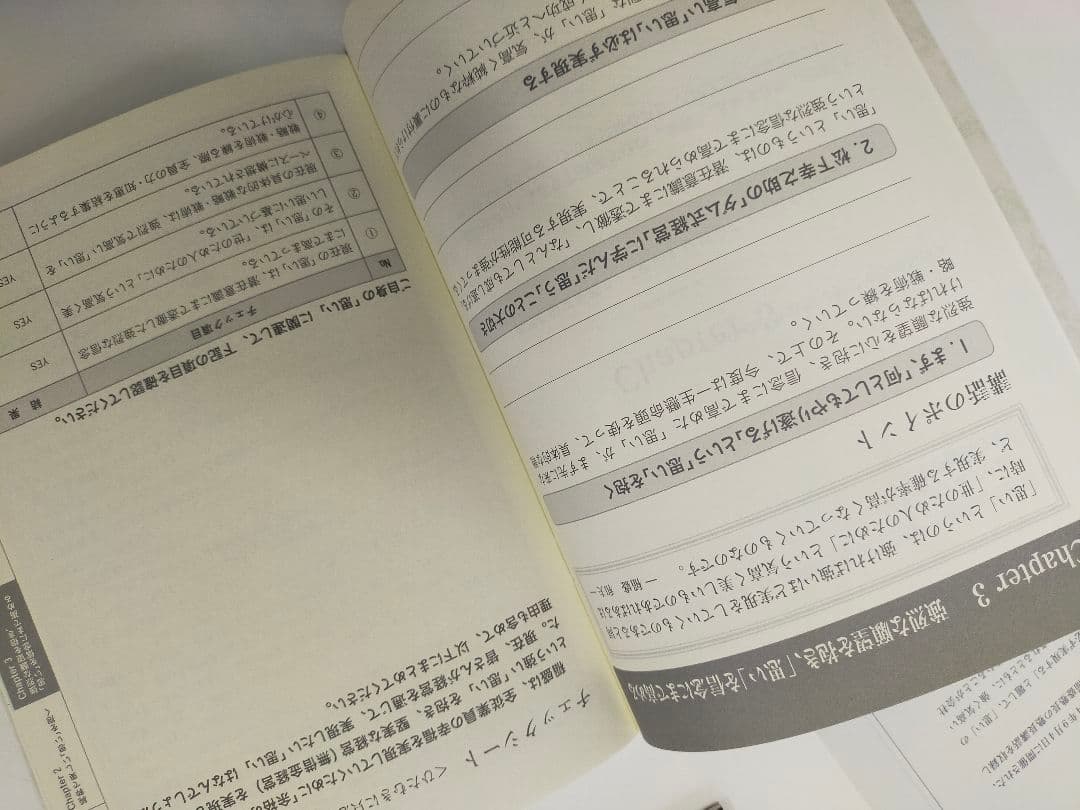 Chapter 3
強烈な願望を抱き、「思い」を信念にまで高める
「思い」というのは、強ければ強いほど実現していくものであると同
時に、「世のため人のために」という気高く美しいものであればあるほ
ど、実現する確率が高くなっていくものなのです。
― 稲盛 和夫 ―
講話のポイント
1. まず、「何としてもやり遂げる」という「思い」を抱く
強烈な願望を心に抱き、信念にまで高めた「思い」が、まず先に
ければならない。その上で、今度は一生懸命頭を使って、具体的な
略・戦術を練っていく。
2. 松下幸之助の「ダム式経営」に学んだ「思う」ことの大切さ
「思い」というものは、潜在意識にまで透徹し、「なんとしても成し遂げ
という強烈な信念にまで高められることで、実現する可能性が強まって
気高い「思い」は必ず実現する
な「思い」が、気高く純粋なものに裏付け
く成功へと近づいていく。
チェックシート
〈ひたむきに
稲盛は、全従業員の幸福を実現していくために「余裕の
という強い「思い」を抱き、堅実な経営（無借金経営）を実現
た。現在、皆さんが経営を通じて、実現したい「思い」はなんでしょう
理由も含めて、以下にまとめてください。
ご自身の「思い」に関連して、下記の項目を確認してください。
No チェック項目 結果
① 現在の「思い」は、潜在意識にまで透徹した強烈な信念
にまで高まっている。 YES
② その「思い」は、「世のため人のために」という気高く美
しい思いに基づいている。 YES
③ 現在の具体的な戦略・戦術は、強烈で気高い「思い」を
ベースに構想されている。 YES
④ 戦略・戦術を練る際、全員の力・知恵を結集するように
心がけている。
Chapter 2
Chapter 3
強烈な願望を抱き、
「思い」を信念にまで高める